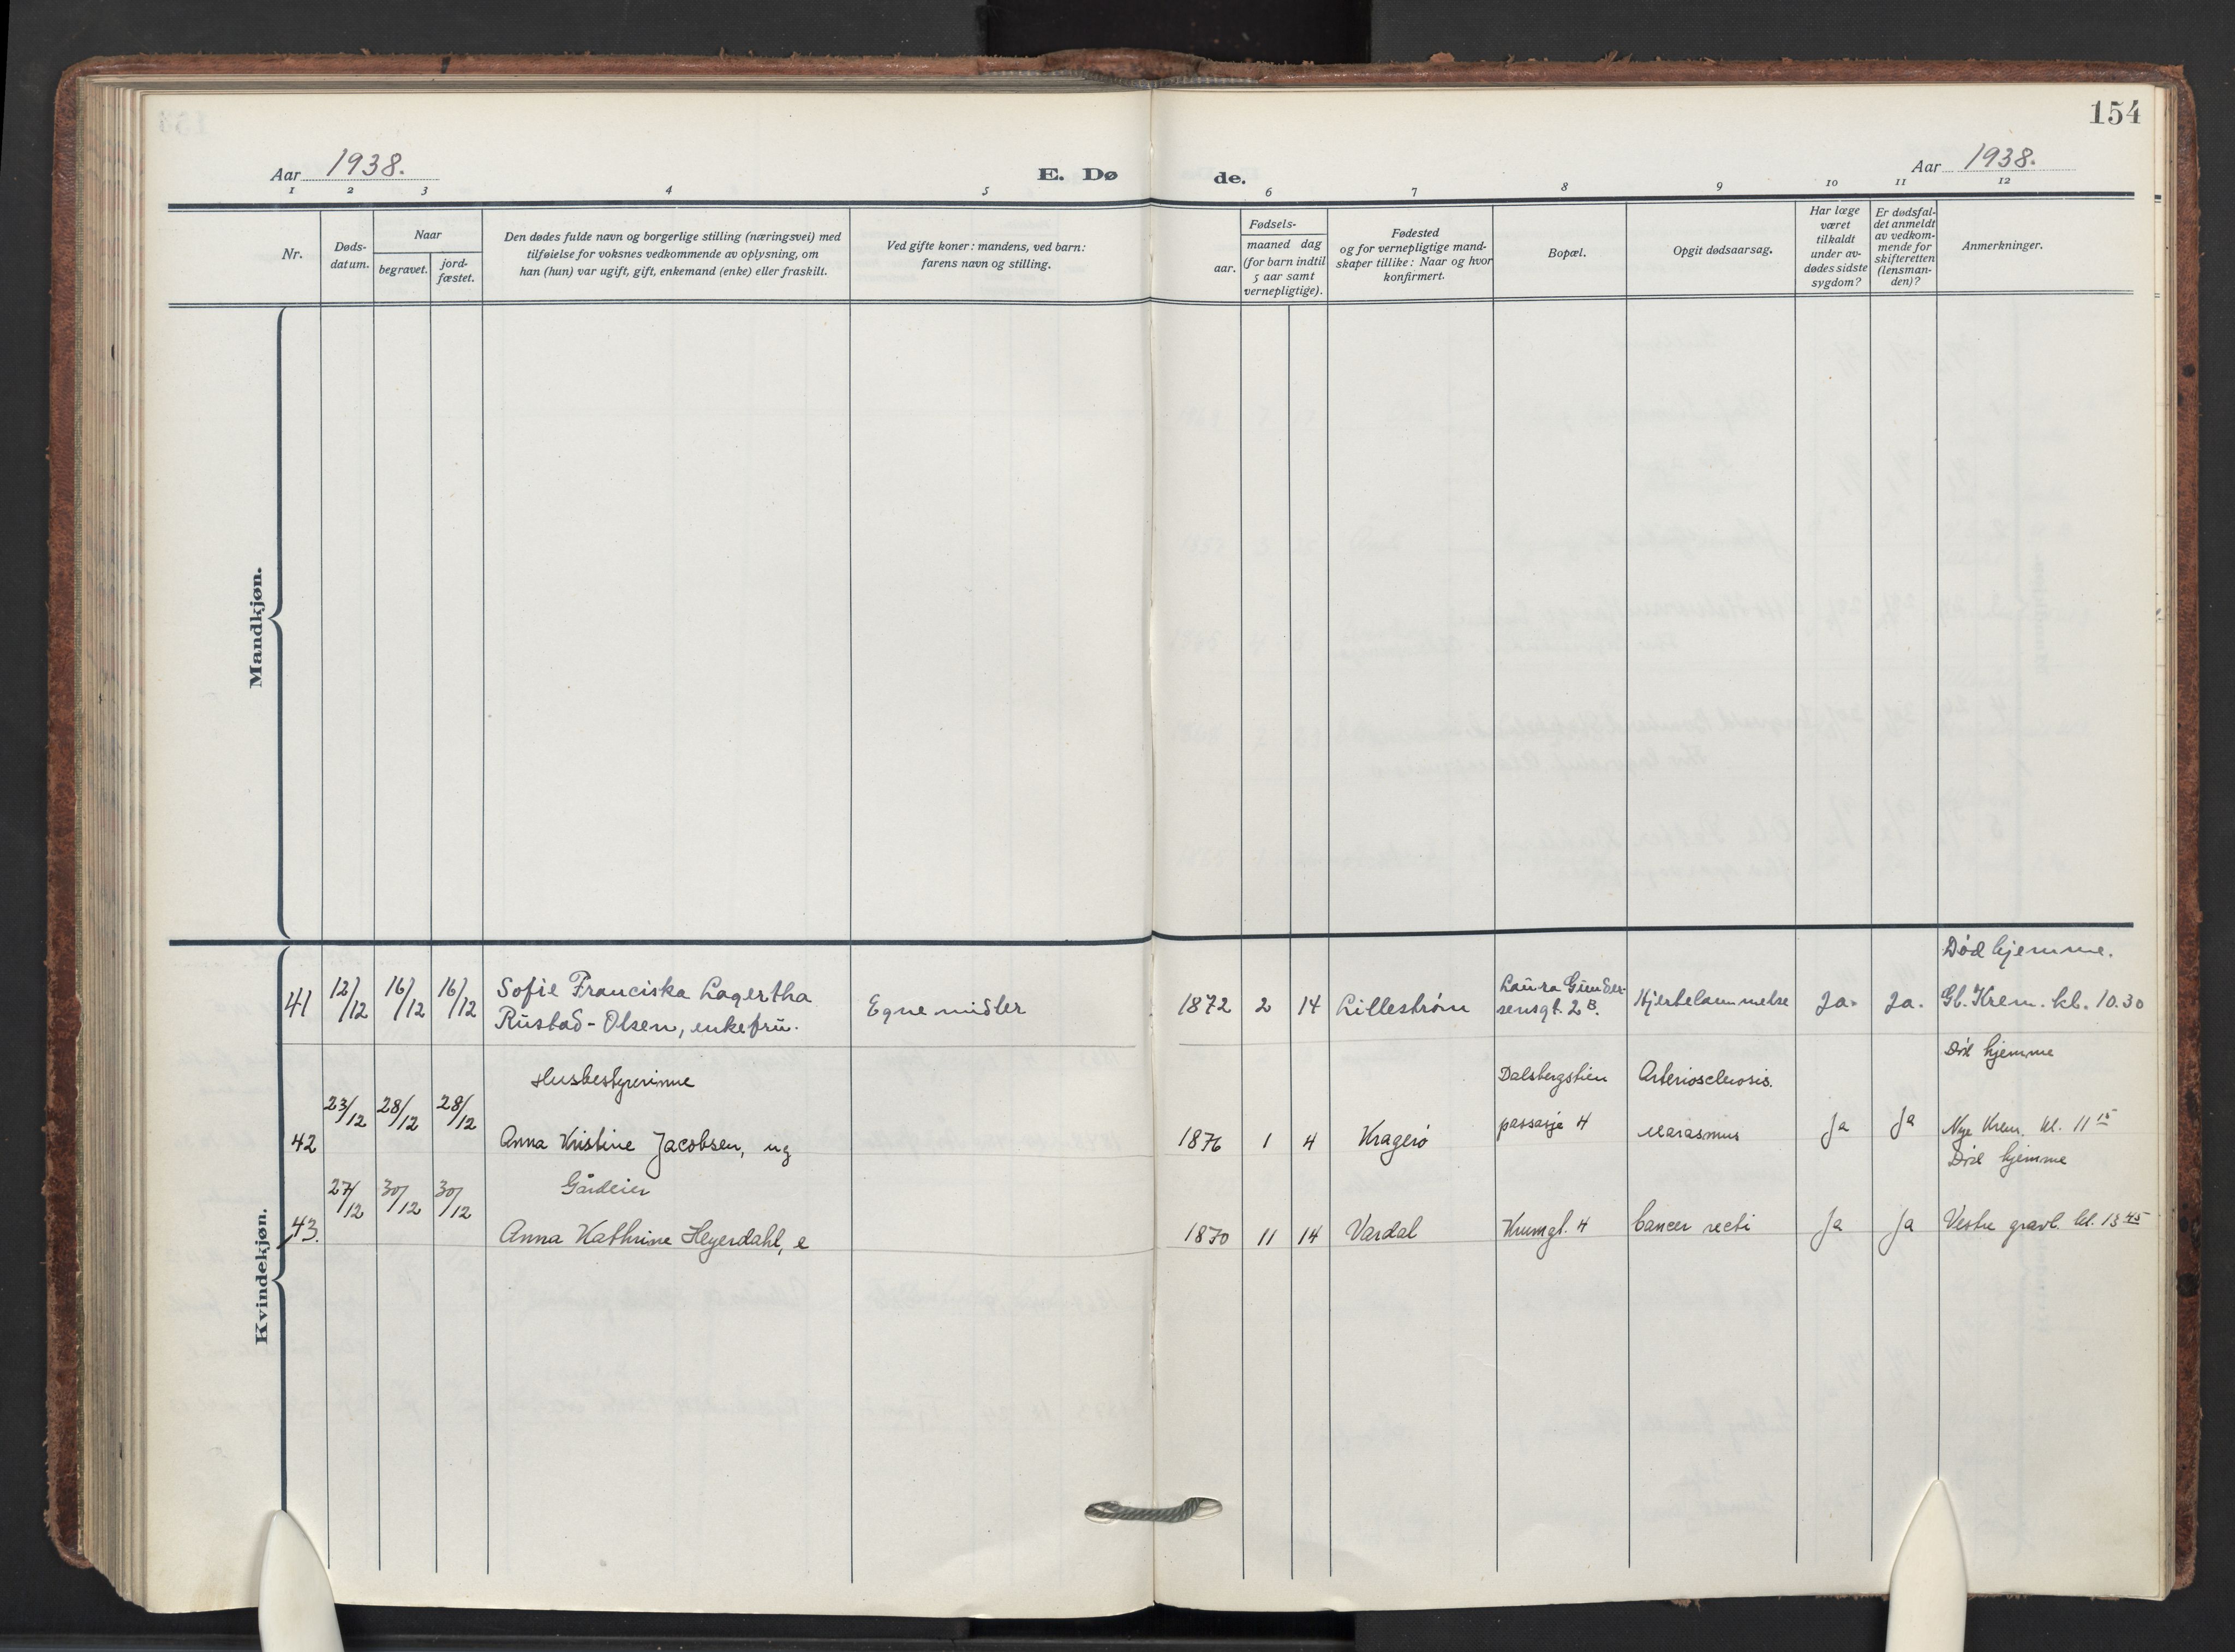 154
Aar 1938.
E. Dø
de.
Aar 1938.
1 2 3 4 5 6 7 8 9 10 11 12
Nr.
Døds-
datum.
Naar
begravet.
jord-
fæstet.
Den dødes fulde navn og borgerlige stilling (næringsvei) med
tilføielse for voksnes vedkommende av oplysning, om
han (hun) var ugift, gift, enkemand (enke) eller fraskilt.
Ved gifte koner: mandens, ved barn:
farens navn og stilling.
Fødsels-
aar.
maaned dag
(for barn indtil
5 aar samt
vernepligtige).
Fødested
og for vernepligtige mand-
skaper tillike: Naar og hvor
konfirmert.
Bopæl.
Opgit dødsaarsag.
Har læge
været
tilkaldt
under av-
dødes sidste
sygdom?
Er dødsfal-
det anmeldt
av vedkom-
mende for
skifteretten
(lensman-
den)?
Anmerkninger.
Mandkjøn.
Kvindekjøn.
41
12/12
16/12
16/12
Sofie Franciska Lagertha
Rustad-Olsen, enkefru.
Egne midler
1872
2
14
Lillestrøm
Laura Gunder-
sensgt. 2 B.
Hjertelammelse
Ja.
Ja.
Død hjemme.
Gl. Krem. kl. 10.30
42
23/12
28/12
28/12
Husbestyrerinne
Anna Kristine Jacobsen, ug
1876
1
4
Kragerø
Dalsbergstien
passasje 4
Arteriosclerosis.
Marasmus
Ja
Ja
Død hjemme
Nye Krem. kl. 11 15
43.
27/12
30/12
30/12
Gårdeier
Anna Kathrine Heyerdahl, e
1870
11
14
Vardal
Krumgt. 4
Cancer recti
Ja
Ja
Død hjemme
Vestre gravl. kl. 13 45